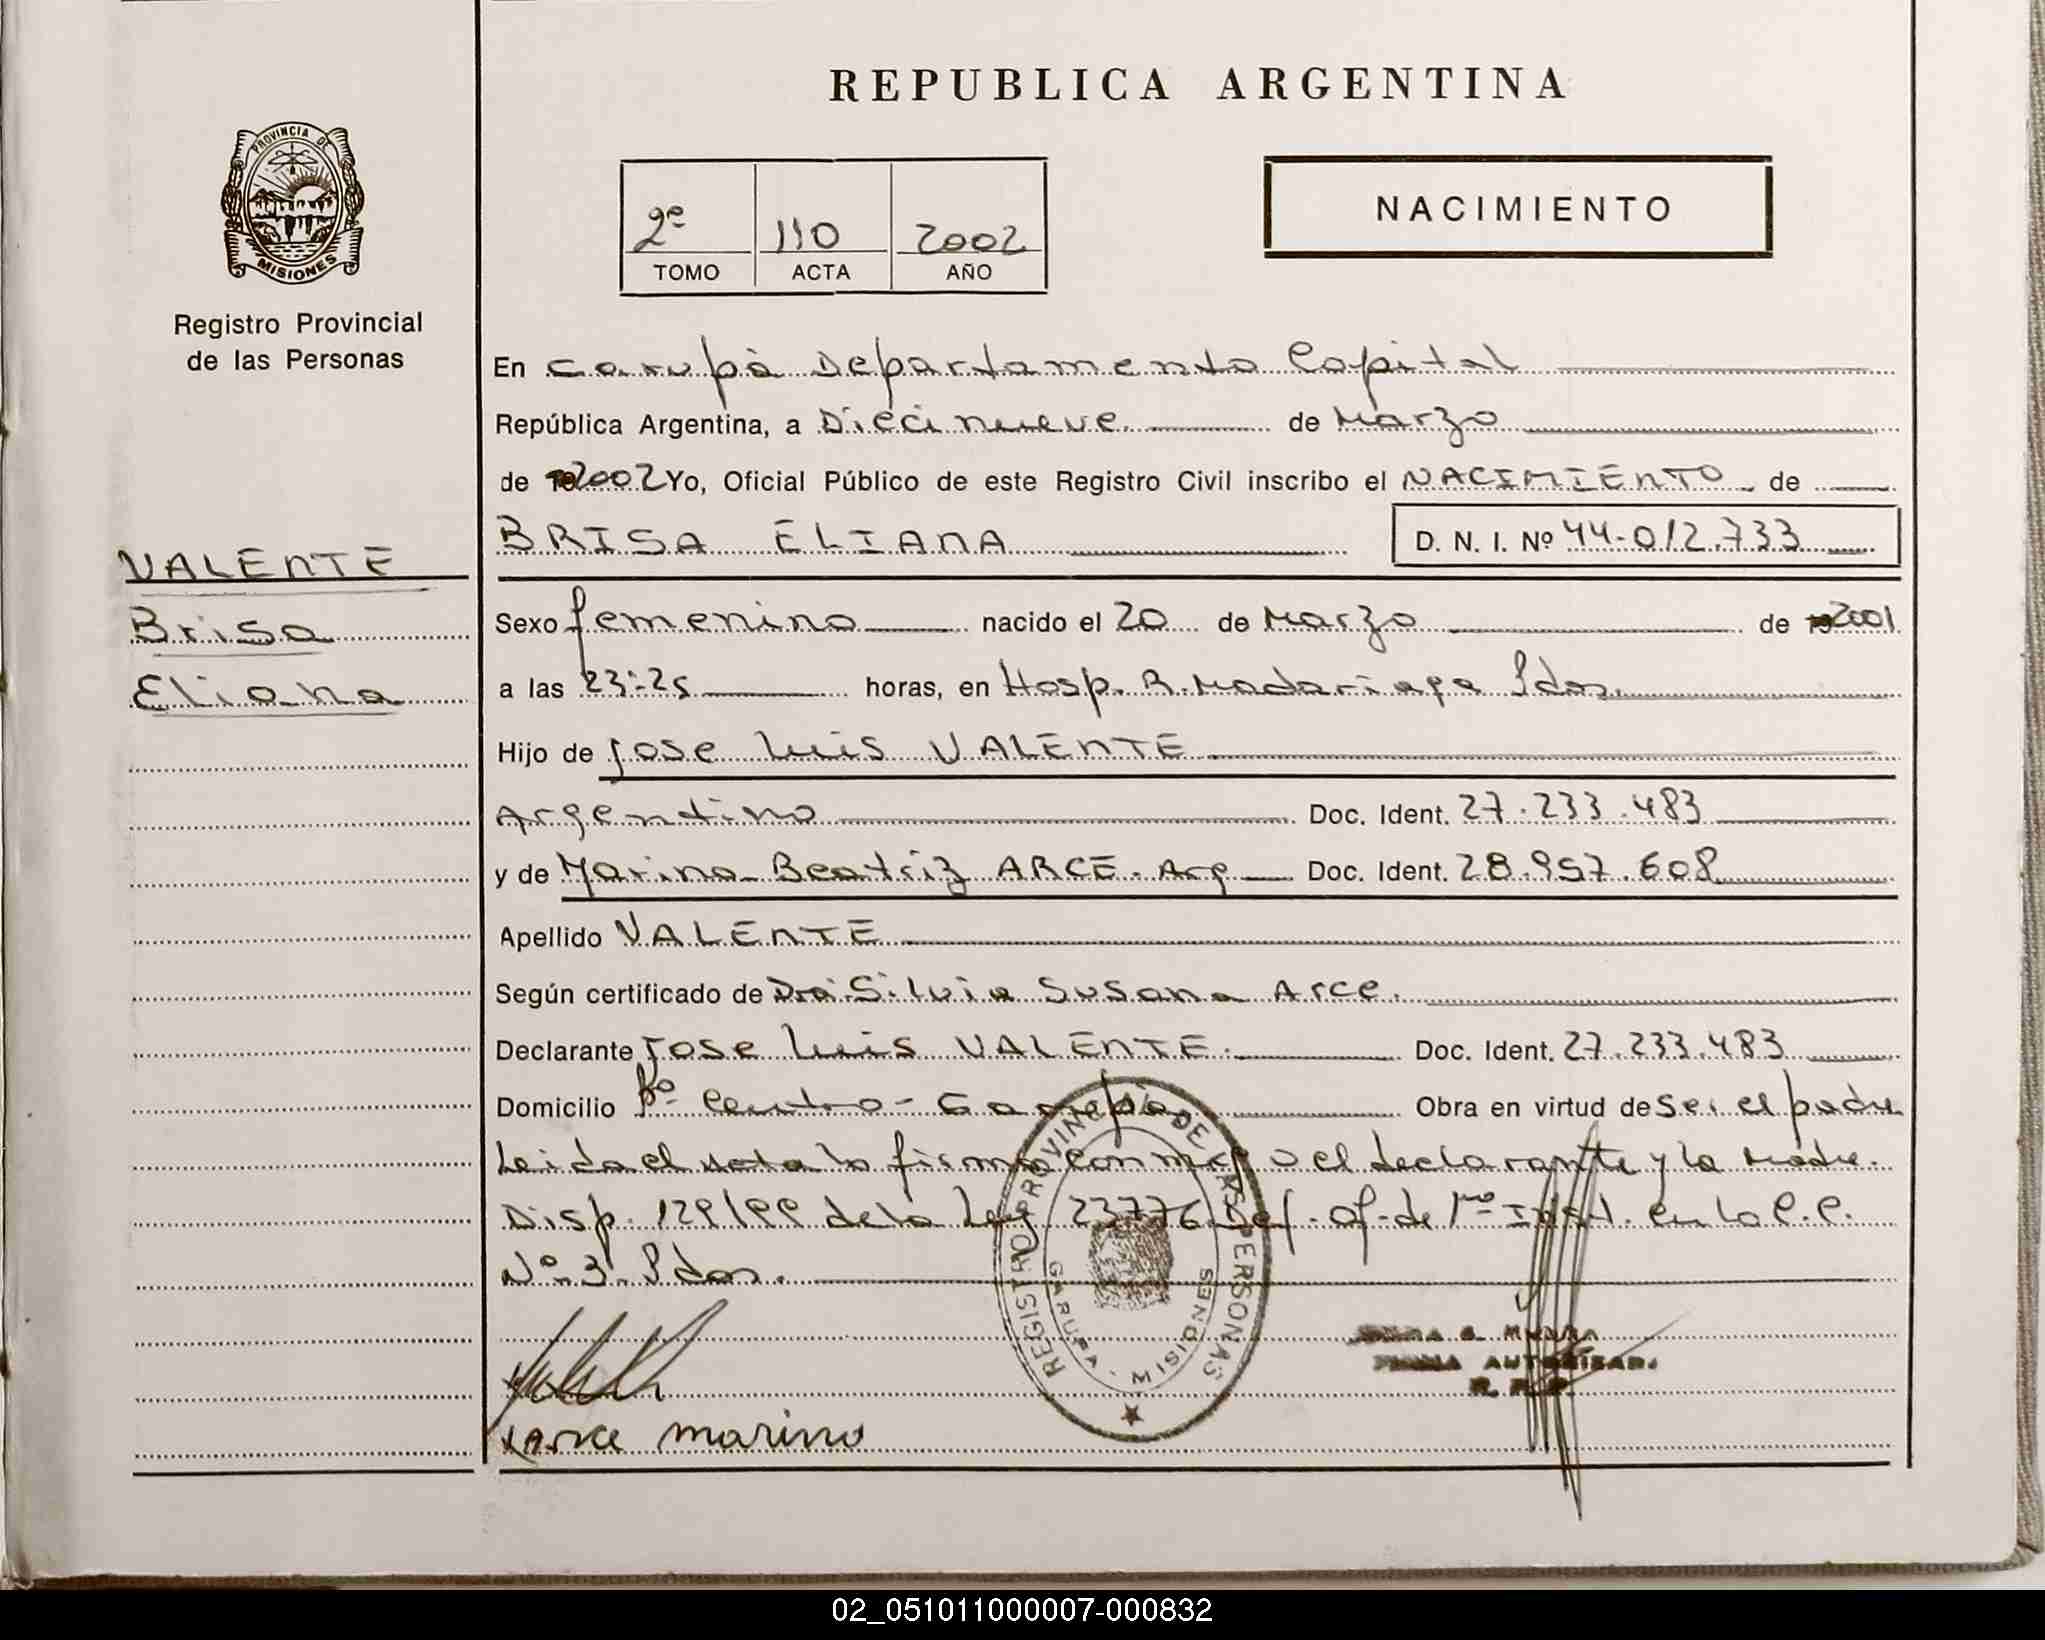 REPUBLICA ARGENTINA
PROVINCIA DE
MISIONES
Registro Provincial
de las Personas
2º 110 2002
TOMO ACTA AÑO
NACIMIENTO
En Garupá Departamento Capital
República Argentina, a Diecinueve de Marzo
de 2002 Yo, Oficial Público de este Registro Civil inscribo el NACIMIENTO de
BRISA ELIANA D. N. I. Nº 44-012.733
VALENTE
Brisa
Eliana
Sexo femenino nacido el 20 de Marzo de 2001
a las 23:25 horas, en Hosp. R. Madariaga Pdas.
Hijo de Jose Luis VALENTE
Argentino Doc. Ident. 27.233.483
y de Marina Beatriz ARCE. Arg Doc. Ident. 28.957.608
Apellido VALENTE
Según certificado de Dra. Silvia Susana Arce.
Declarante Jose Luis VALENTE. Doc. Ident. 27.233.483
Domicilio Bº Centro - Garupá Obra en virtud de ser el padre
Leida el acta la firman conmigo el declarante y la Madre.
Disp. 129/99 de la Ley 23776 Def. Of. de 1ra Inst. en lo C.C.
Nº 3 Pdas.
REGISTRO PROVINCIAL DE LAS PERSONAS
GARUPA - MISIONES
FIRMA AUTORIZADA
R. P. P.
Arce marina
02_051011000007-000832